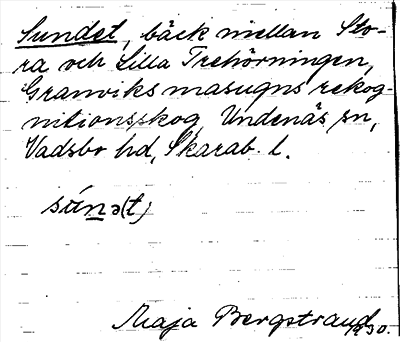 Sundet, bäck mellan Sto-
ra och Lilla Trehörningen,
Granviks masugns rekog-
nitionsskog, Undenäs sn,
Vadsbo hd, Skarab. l.
súnə(t)
Maja Bergstrand
1930.